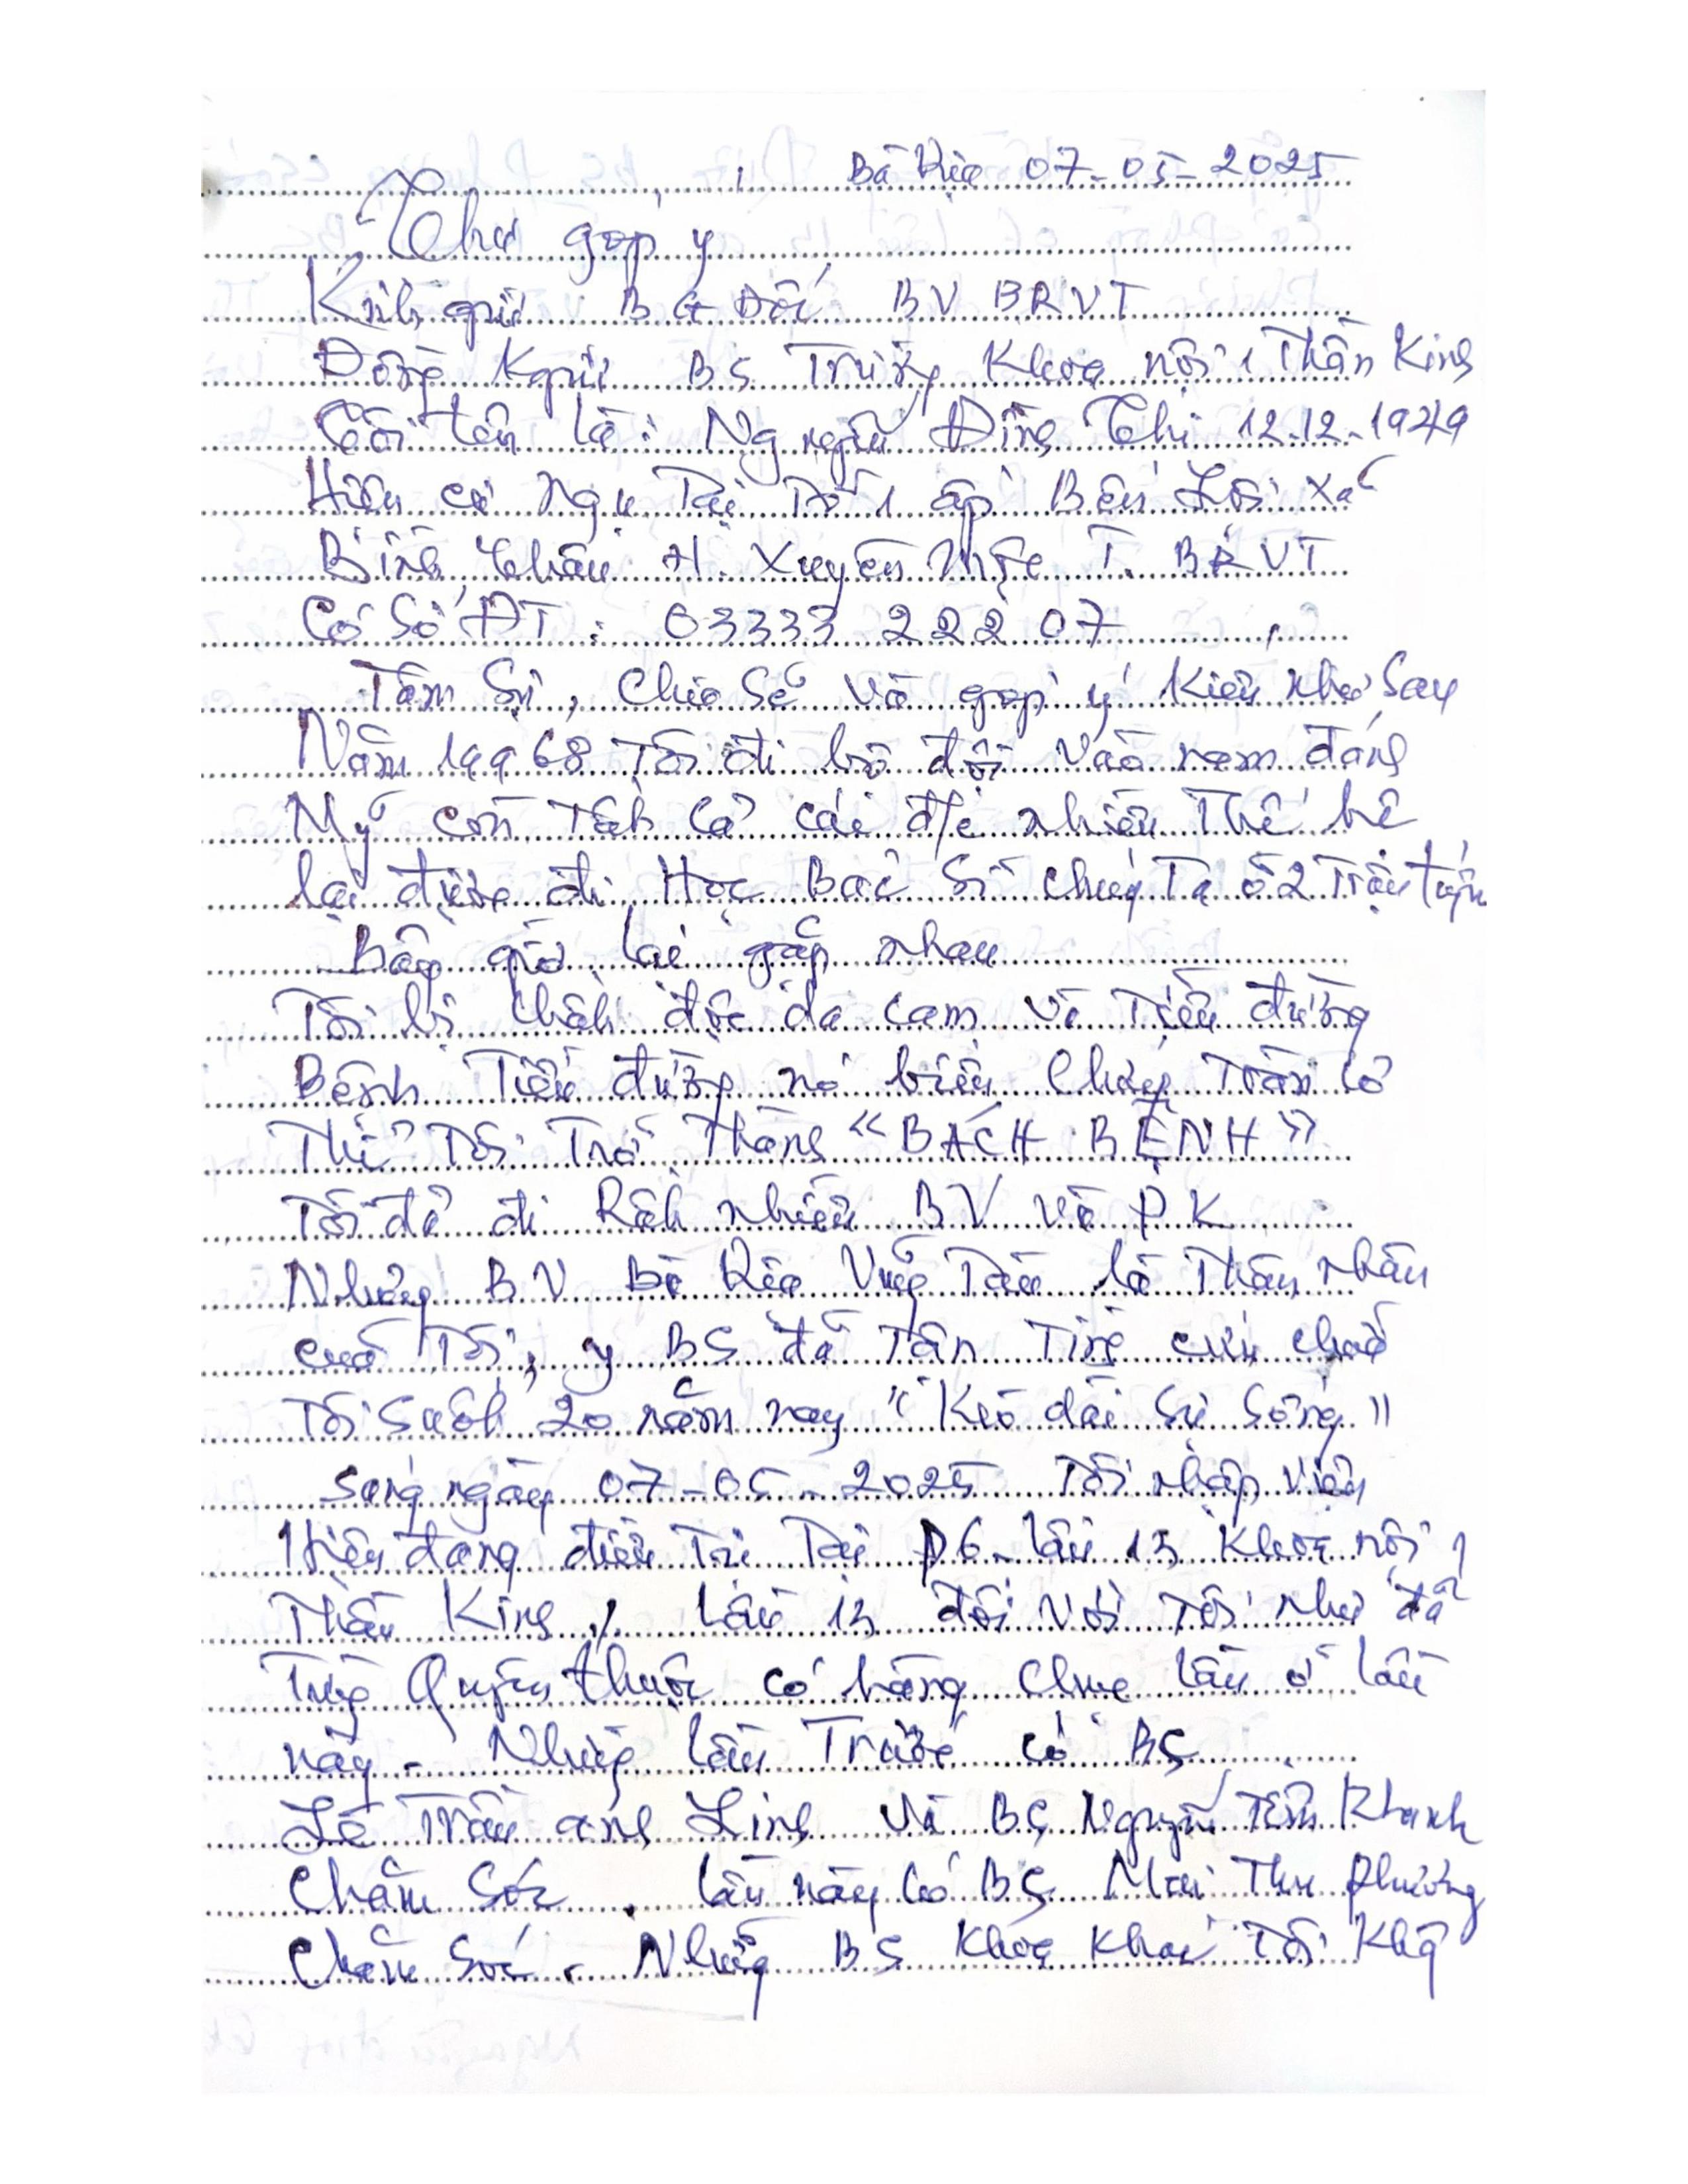 Bà Rịa 07-05-2025
Thư góp ý
Kính gửi BG Đốc BV BRVT
Đồng Kgửi BS Trưởng Khoa nội 1 Thần Kinh
Tôi tên là: Nguyễn Đình Thi 12.12.1949
Hiện cư ngụ Tại Tổ 1 ấp Bến Lội xã
Bình Châu H. Xuyên Mộc T. BRVT
Có Số ĐT: 03333 222 07
Tâm Sự, Chia Sẻ và góp ý Kiến như Sau
Năm 1968 Tôi đi bộ đội vào nam đánh
Mỹ còn Tất cả các nhiều Thế hệ
lại được đi Học Bác Sĩ chúng Ta ở 2 Trận tuyến
Bây giờ lại gặp nhau
Tôi bị chất độc da cam và Tiểu đường
Bệnh Tiểu đường nó biến chứng Toàn cơ
Thể Tôi Trở Thành "BÁCH BỆNH"
Tôi đã đi Rất nhiều BV và PK
Nhưng BV Bà Rịa Vũng Tàu là Thân nhân
của Tôi, y BS đã Tận Tình cứu chữa
Tôi Suốt 20 năm nay "Kéo dài Sự Sống"
Sáng ngày 07-05-2025 Tôi nhập viện
Hiện đang điều Trị Tại P6 lầu 13 Khoa nội 1
Thần Kinh, lầu 13 đối với Tôi như đã
Từng Quyến thuộc có hàng chục lần ở lầu
này - Những lần Trước có BS
Lê Trần anh Linh và BS Nguyễn Tiến Khanh
Chăm Sóc. lần này có BS Mai Thu Phương
Chăm Sóc. Những BS Khoa Khác Tôi Khg